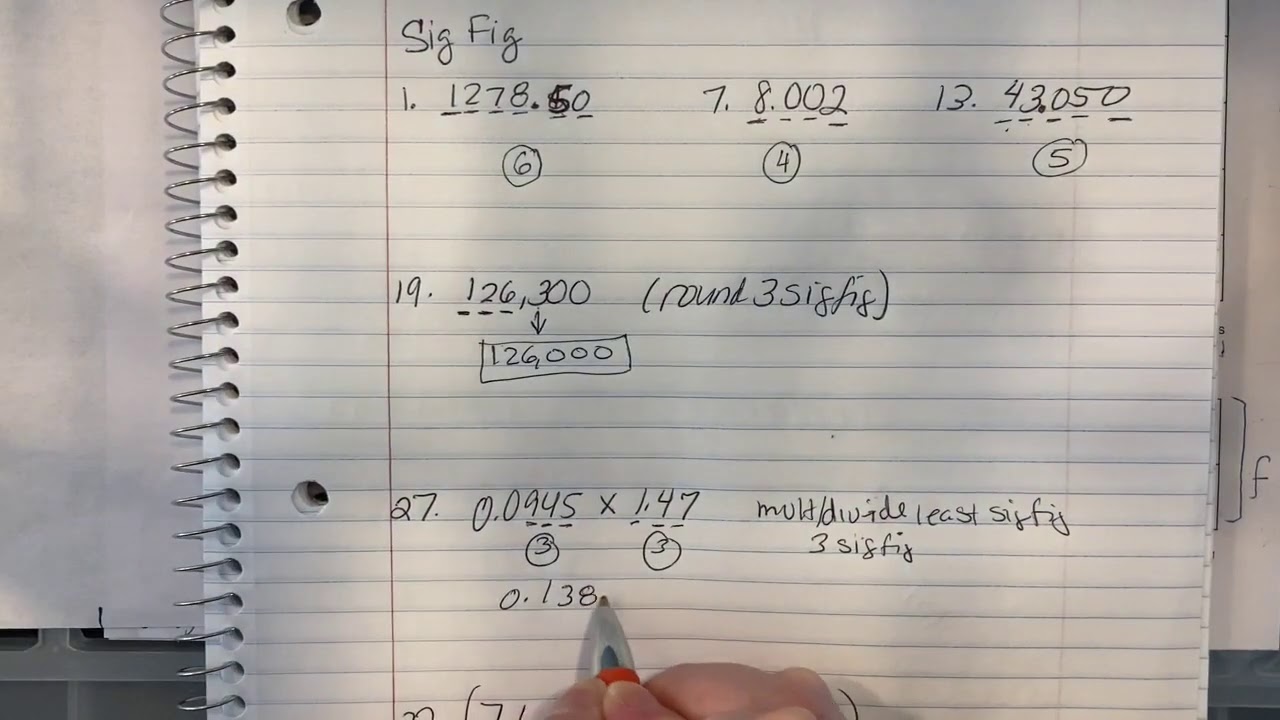 Sig Fig
1. 1278.50 7. 8.002 13. 43.050
6 4 5
19. 126,300 (round 3 sigfig)
126,000
27. 0.0945 × 1.47 mult/divide least sigfig
3 3 3 sigfig
0.138
f